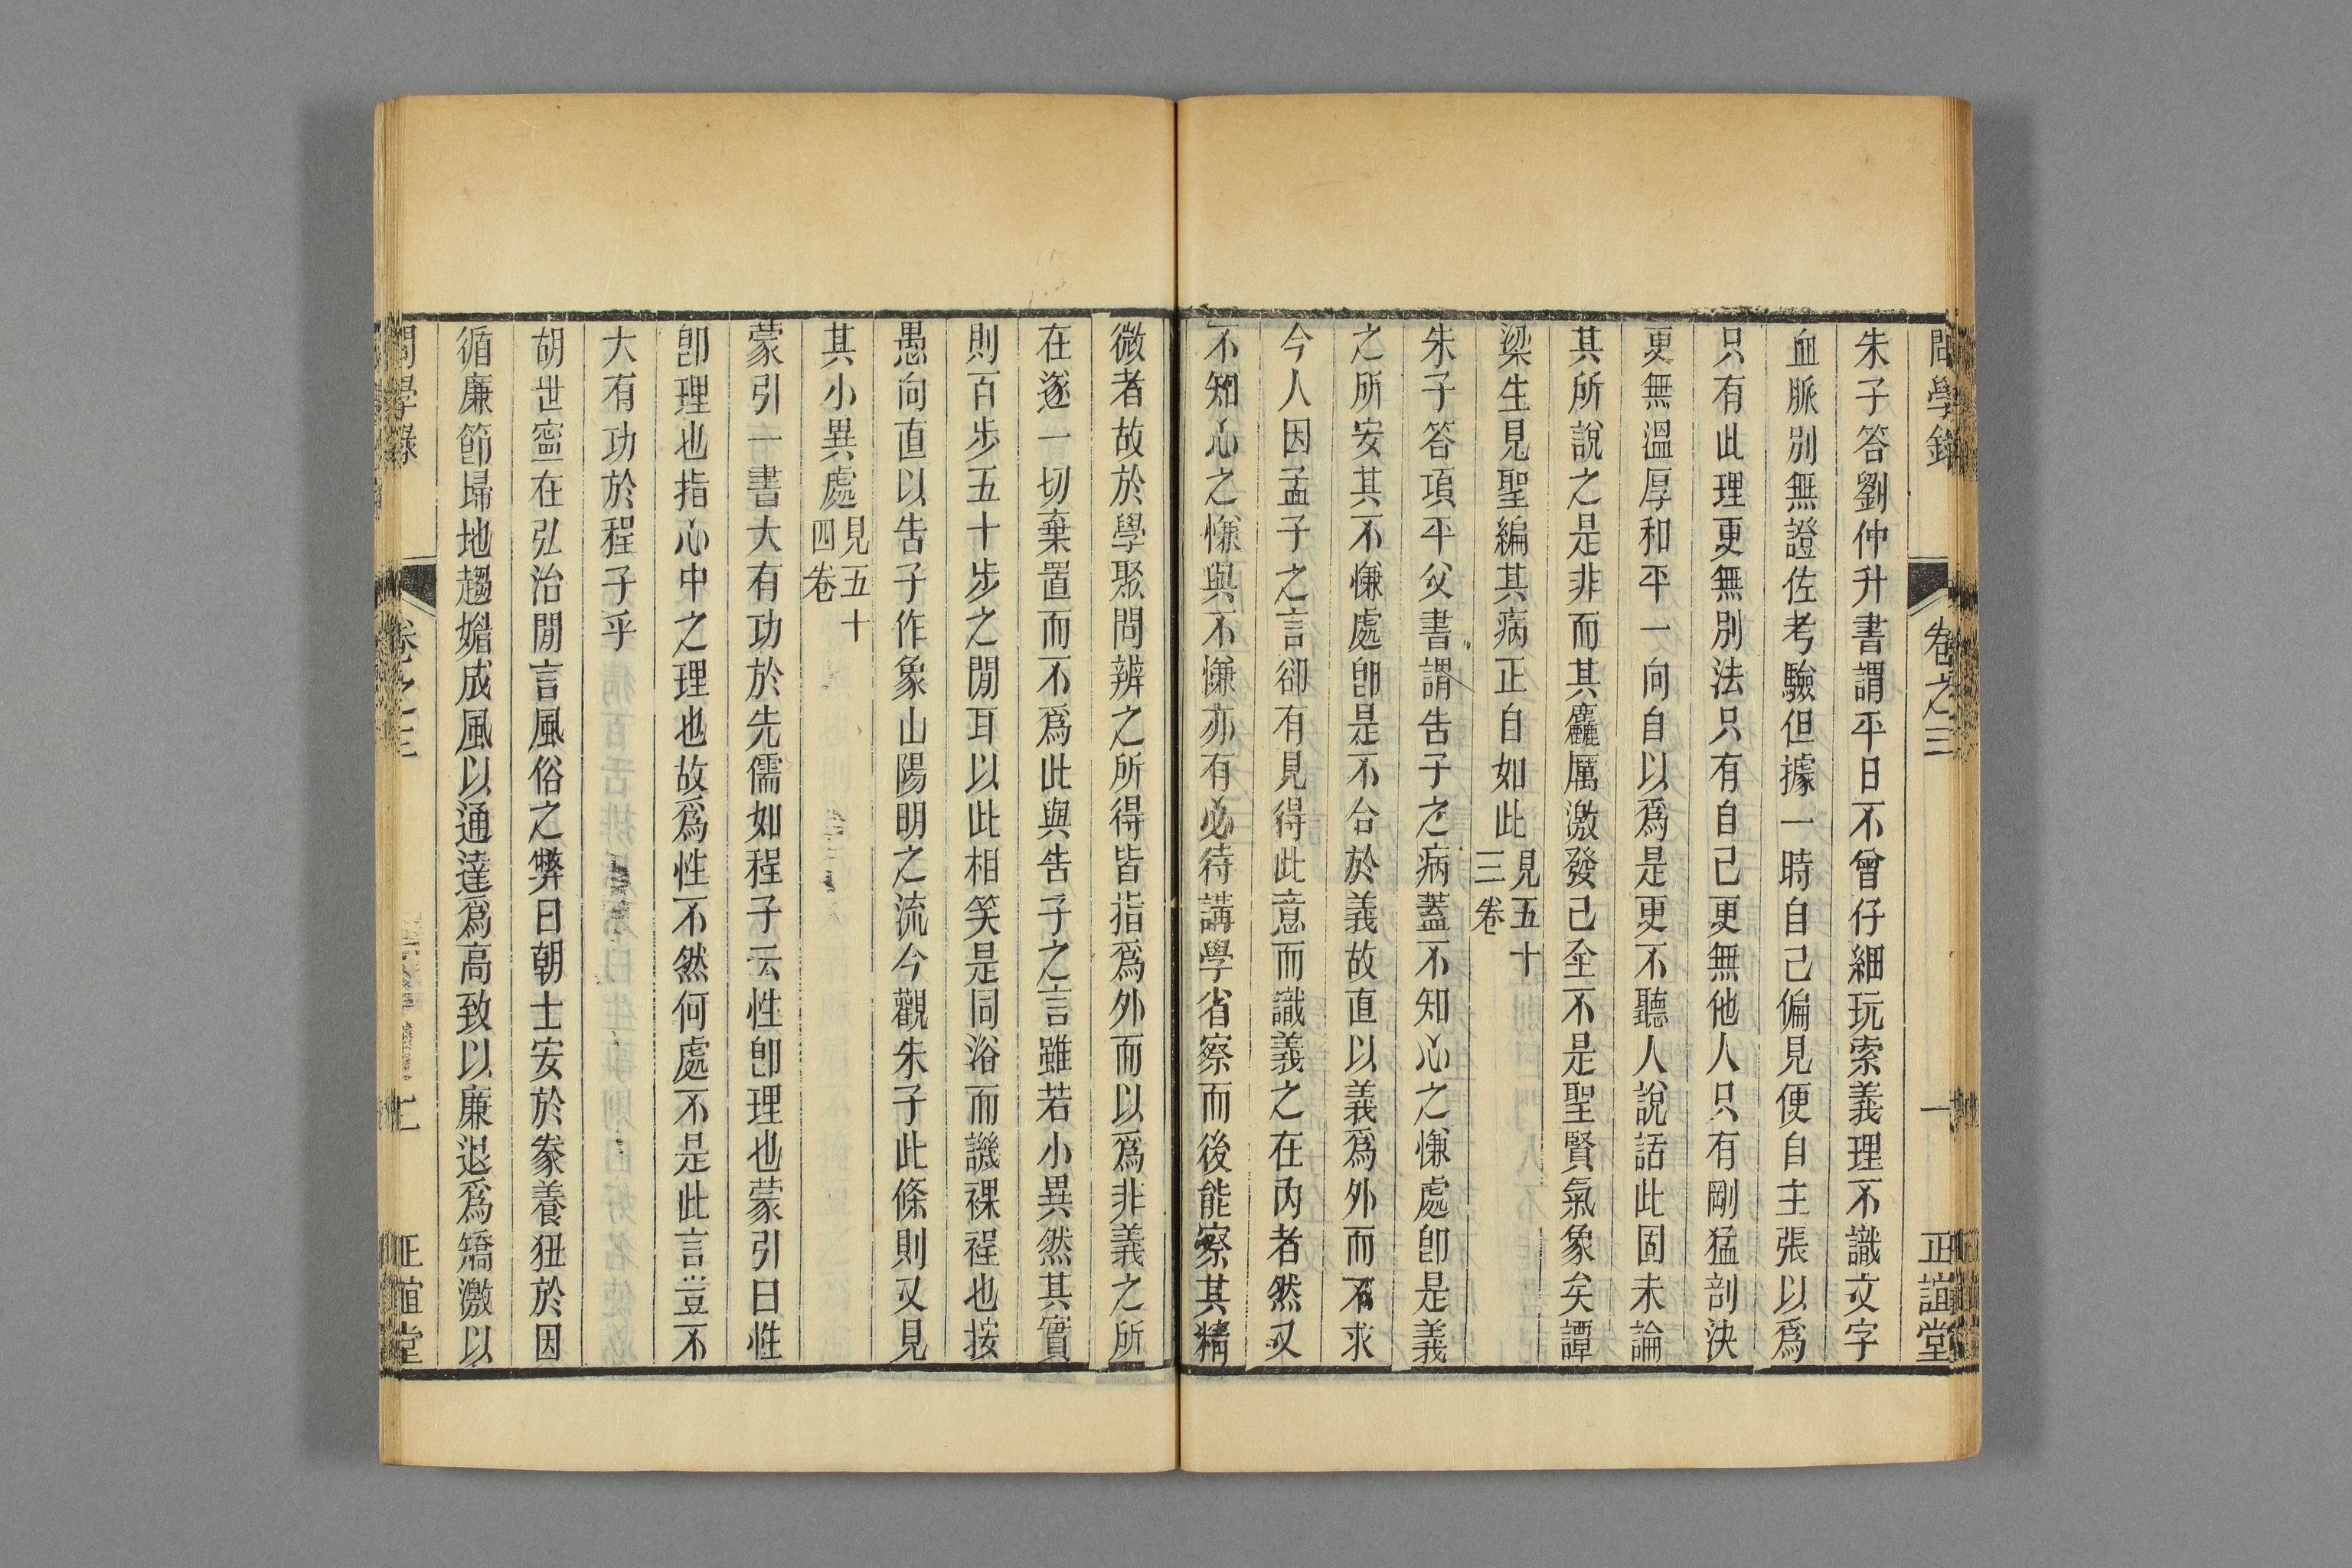 問學錄 卷之三 一 正誼堂
朱子答劉仲升書謂平日不曾仔細玩索義理不識文字
血脈別無證佐考驗但據一時自己偏見便自主張以爲
只有此理更無別法只有自己更無他人只有剛猛剖決
更無溫厚和平一向自以爲是更不聽人說話此固未論
其所說之是非而其麤厲激發已全不是聖賢氣象矣譚
梁生見聖編其病正自如此見五十三卷
朱子答項平父書謂告子之病蓋不知心之慊處卽是義
之所安其不慊處卽是不合於義故直以義爲外而不求
今人因孟子之言卻有見得此意而識義之在內者然又
不知心之慊與不慊亦有必待講學省察而後能察其精
微者故於學聚問辨之所得皆指爲外而以爲非義之所
在遂一切棄置而不爲此與告子之言雖若小異然其實
則百步五十步之閒耳以此相笑是同浴而譏裸裎也按
愚向直以告子作象山陽明之流今觀朱子此條則又見
其小異處見五十四卷
蒙引一書大有功於先儒如程子云性卽理也蒙引曰性
卽理也指心中之理也故爲性不然何處不是此言豈不
大有功於程子乎
胡世寧在弘治閒言風俗之弊曰朝士安於豢養狃於因
循廉節埽地趨媚成風以通達爲高致以廉退爲矯激以
問學錄 卷之三 七 正誼堂